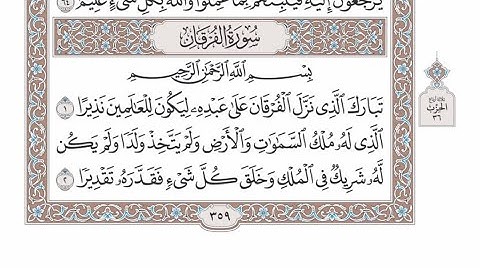 يُرْجَعُونَ إِلَيْهِ فَيُنَبِّئُهُم بِمَا عَمِلُوا۟ وَٱللَّهُ بِكُلِّ شَىْءٍ عَلِيمٌۢ ٦٤
سُورَةُ الفُرْقَانِ
بِسْمِ ٱللَّهِ ٱلرَّحْمَٰنِ ٱلرَّحِيمِ
تَبَارَكَ ٱلَّذِى نَزَّلَ ٱلْفُرْقَانَ عَلَىٰ عَبْدِهِۦ لِيَكُونَ لِلْعَٰلَمِينَ نَذِيرًا ١
ٱلَّذِى لَهُۥ مُلْكُ ٱلسَّمَٰوَٰتِ وَٱلْأَرْضِ وَلَمْ يَتَّخِذْ وَلَدًا وَلَمْ يَكُن
لَّهُۥ شَرِيكٌ فِى ٱلْمُلْكِ وَخَلَقَ كُلَّ شَىْءٍ فَقَدَّرَهُۥ تَقْدِيرًا ٢
الحزب
٣٦
٣٥٩